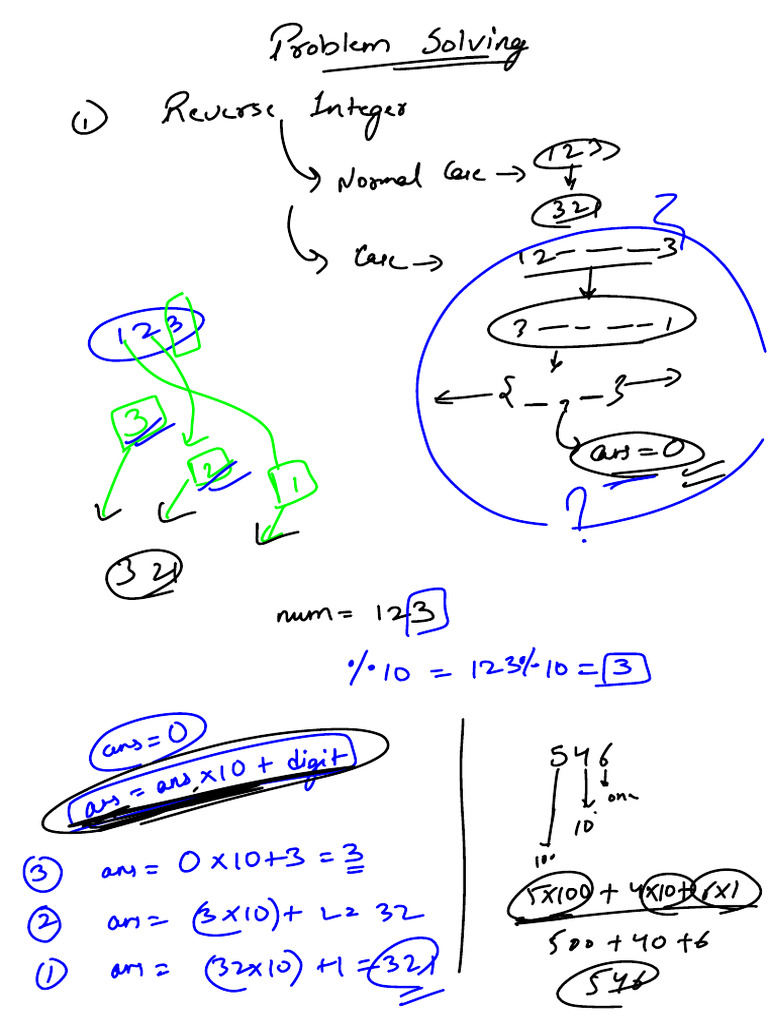 Problem Solving
① Reverse Integer
Normal Case → 123
321
Case → 12-- -- --3
3 -- - -- --1
{ - , - }
ans = 0
?
123
3
2
1
321
num = 123
% 10 = 123 % 10 = 3
ans = 0
ans = ans × 10 + digit
③ ans = 0 × 10 + 3 = 3
② ans = (3 × 10) + 2 = 32
① ans = (32 × 10) + 1 = 321
546
one
10
100
5×100 + 4×10 + 6×1
500 + 40 + 6
546